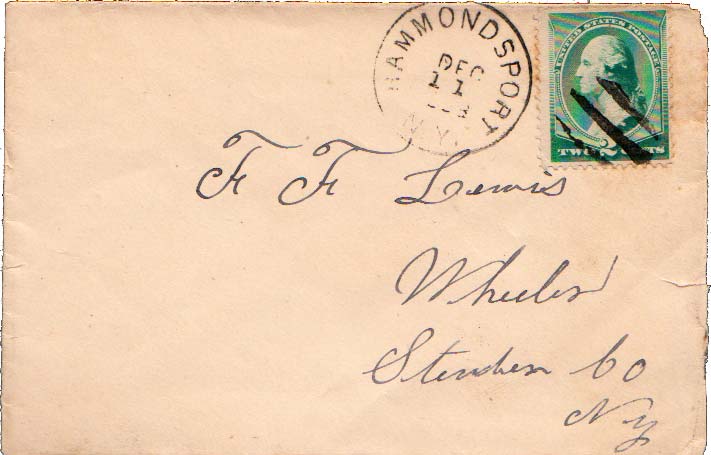 HAMMONDSPORT
DEC
11
N.Y.
UNITED STATES POSTAGE
2
TWO CENTS
F F Lewis
Wheeler
Steuben Co
NY